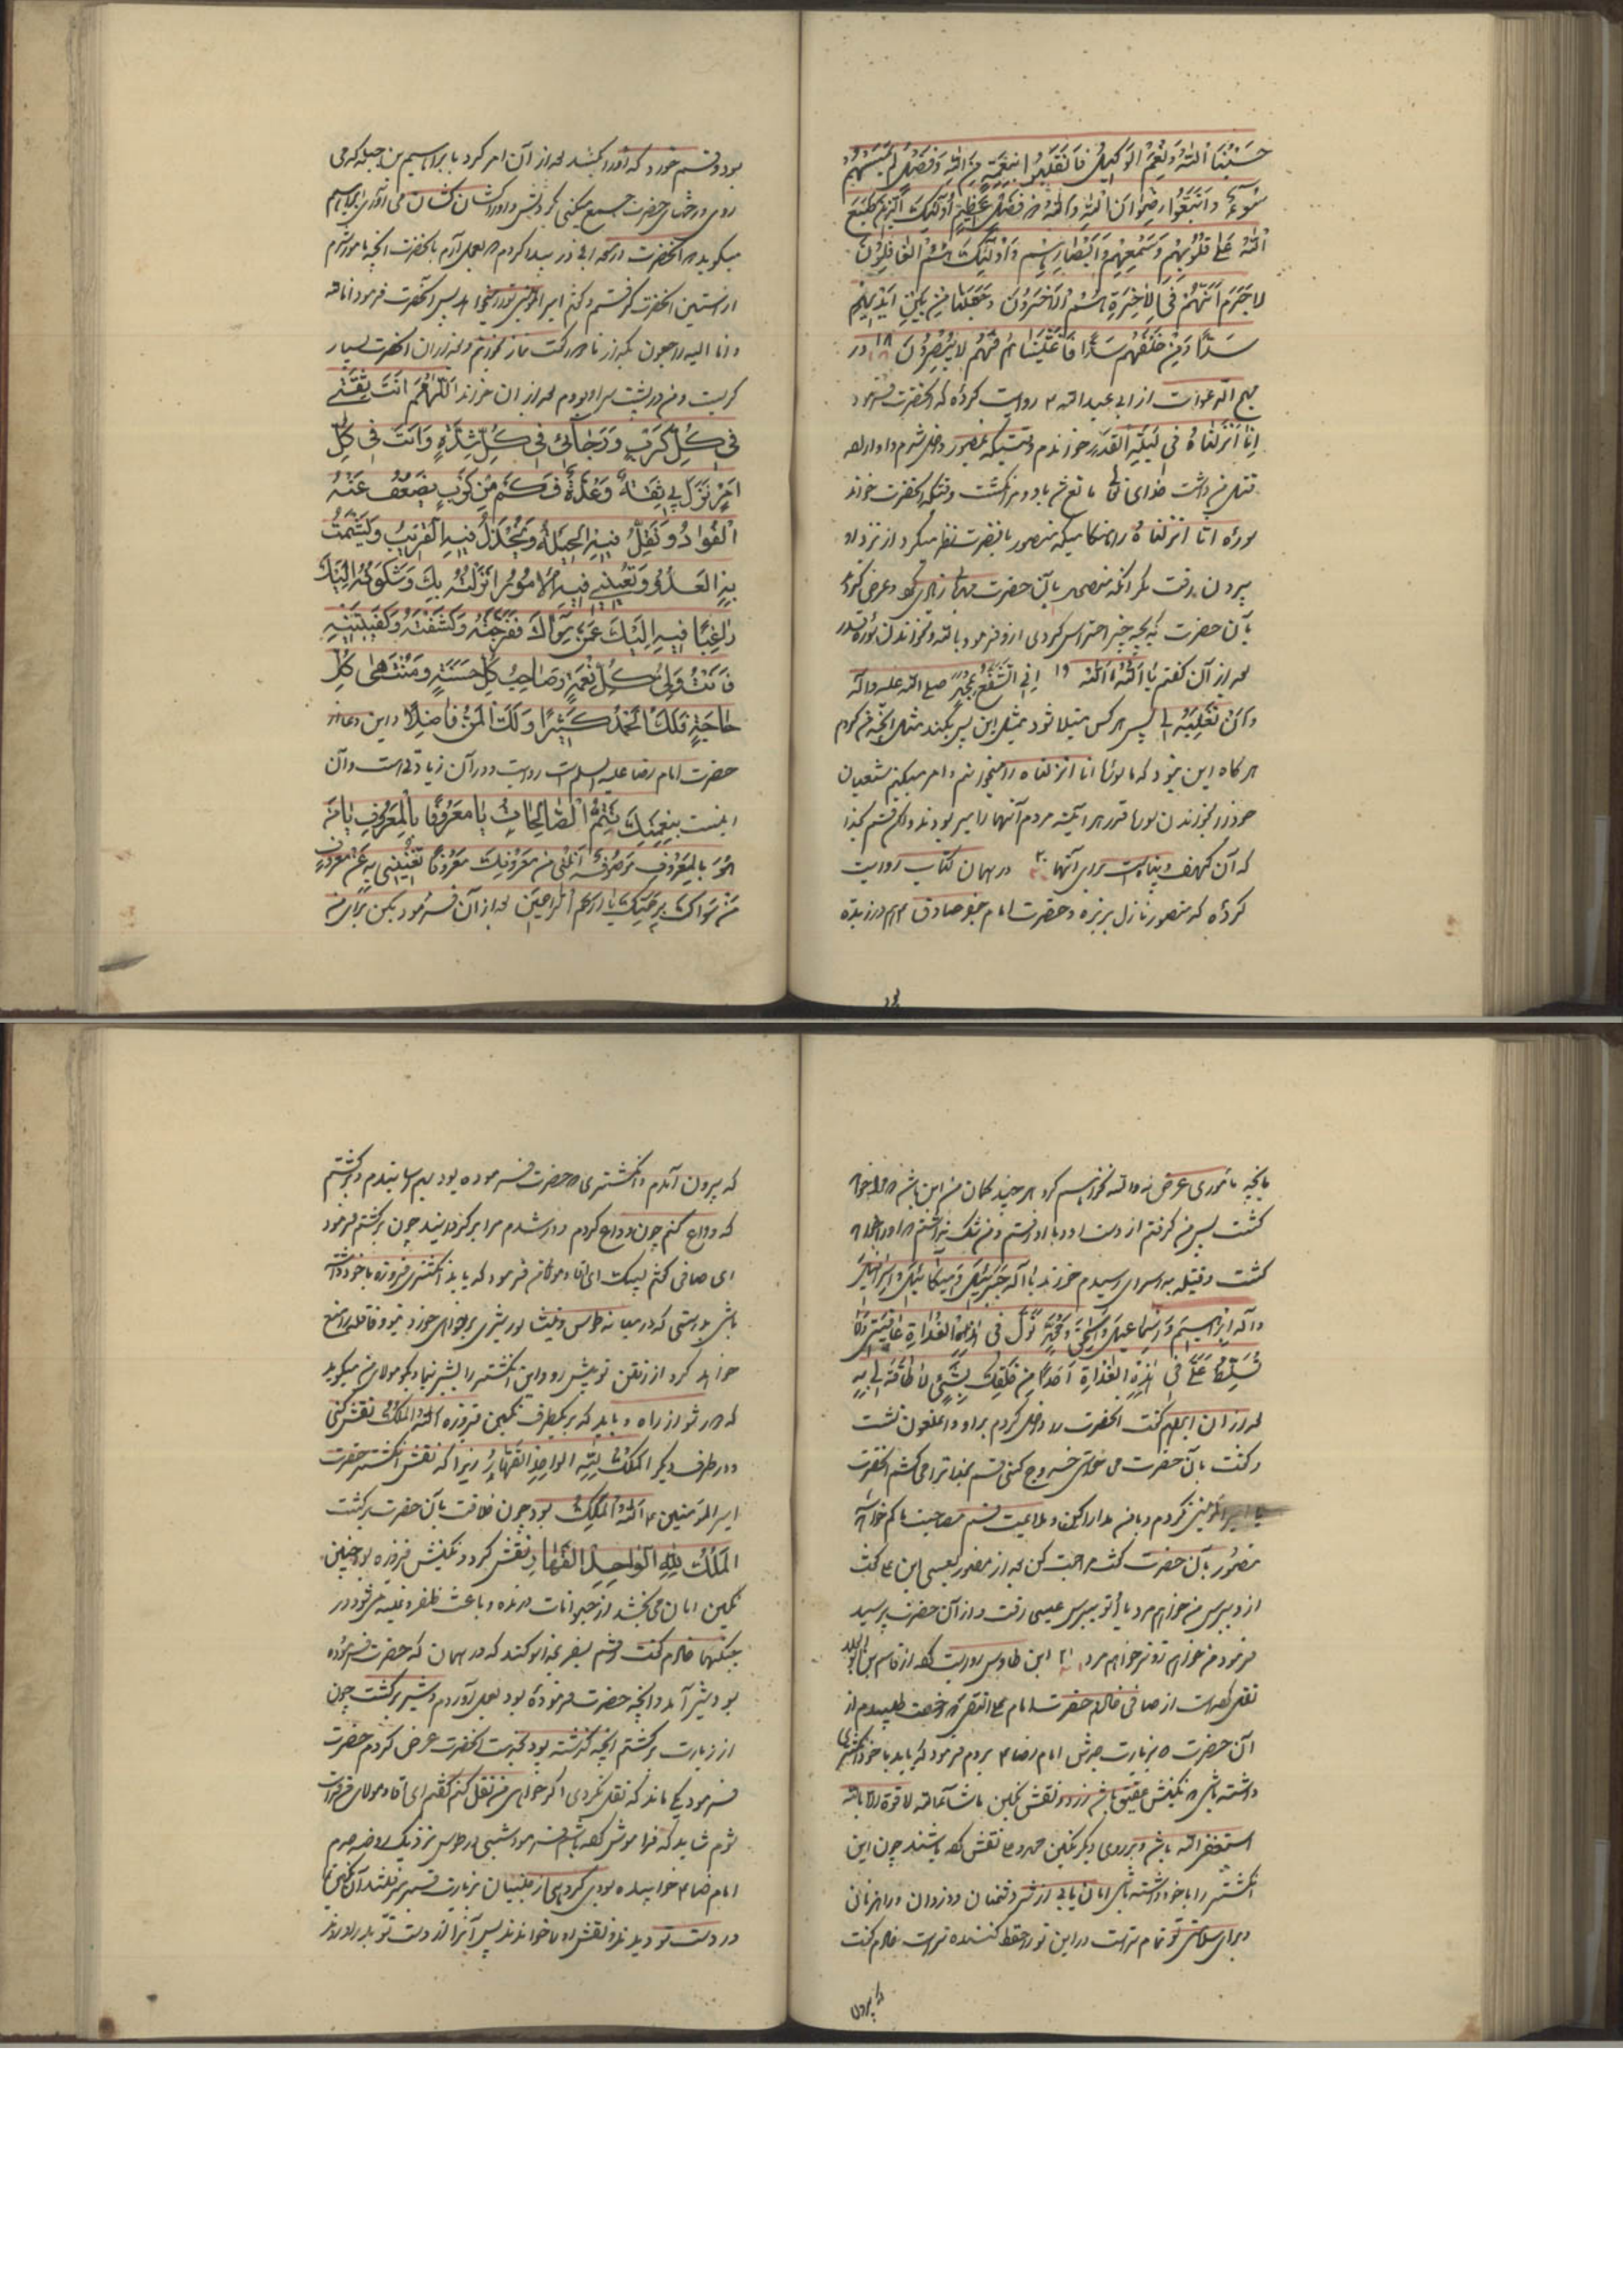 حَسْبُنَا اللهُ وَنِعْمَ الْوَكِيلُ فَانْقَلَبُوا بِنِعْمَةٍ مِنَ اللهِ وَفَضْلٍ لَمْ يَمْسَسْهُمْ
سُوءٌ وَاتَّبَعُوا رِضْوَانَ اللهِ وَاللهُ ذو فَضْلٍ عَظِيمٍ أُولٰئِكَ الَّذِينَ طَبَعَ
اللهُ عَلَى قُلُوبِهِمْ وَسَمْعِهِمْ وَأَبْصَارِهِمْ وَأُولٰئِكَ هُمُ الْغَافِلُونَ
لَا جَرَمَ أَنَّهُمْ فِي الْآخِرَةِ هُمُ الْأَخْسَرُونَ وَجَعَلْنَا مِنْ بَيْنِ أَيْدِيهِمْ
سَدًّا وَمِنْ خَلْفِهِمْ سَدًّا فَأَغْشَيْنَاهُمْ فَهُمْ لَا يُبْصِرُونَ ۱۸ در
مهج الدعوات از ابی عبد الله ع روایت کرده که آنحضرت فرمود
إِنَّا أَنْزَلْنَاهُ فِي لَيْلَةِ الْقَدْرِ خواندم وقتیکه بمنصور داخل شدم و او اراده
قتل من داشت خدای تعالی مانع شد و برنگشت وقتیکه آنحضرت خواند
سوره انا انزلناه را هنگامیکه منصور بآنحضرت نظر میکرد از نزد او
بیرون نرفت مگر آنکه منصور بآن حضرت وعرض کرد
بآن حضرت که بچه چیز احتراس کردی ازو فرمود بالله و بخواندن سوره قدر
بعد از آن گفتم يَا اَللهُ يَا اَللهُ إِنِّي أَتَشَفَّعُ بِمُحَمَّدٍ صلی الله علیه وآله
وَأَنْ تَغْلِبَهُ لِي پس هر کس مبتلا شود بمثل این پس بکند مثل آنچه من کردم
هر گاه این نبود که ما سوره انا انزلناه را میخوانیم و امر میکنیم شیعیان
خود را بخواندن سوره قدر هر آینه مردم آنها را میربودند ولکن قسم بخدا
که آن کهف و پناهست برای آنها ۲۰ در همان کتاب روایت
کرده که منصور نازل بربزه و حضرت امام جعفر صادق ع هم در ربذه
بود و قسم خورد که او را بکشد بعد از آن امر کرد با ابراهیم بن جبله که می
روی و رختهای حضرت جمع میکنی بگردنش و او را کشان کشان می آوری ابراهیم
میگوید که آنحضرت در مسجد ابی ذر پیدا کردم بعمل آرم بآنحضرت آنچه مامور شدم
از آستین آنحضرت گرفتم و گفتم امیر المؤمنین تو را میخواهد پس آنحضرت فرمود انا لله
و انا الیه راجعون بگذار تا دو رکعت نماز بگذارم و بعد از آن آنحضرت بسیار
گریست و من در پشت سر او بودم بعد از آن خواند اَللّٰهُمَّ أَنْتَ ثِقَتِي
فِي كُلِّ كَرْبٍ وَرَجَائِي فِي كُلِّ شِدَّةٍ وَأَنْتَ فِي كُلِّ
أَمْرٍ نَزَلَ بِي ثِقَةٌ وَعُدَّةٌ فَكَمْ مِنْ كَرْبٍ يَضْعُفُ عَنْهُ
الْفُؤَادُ وَتَقِلُّ فِيهِ الْحِيلَةُ وَيَخْذُلُ فِيهِ الْقَرِيبُ وَيَشْمَتُ
بِهِ الْعَدُوُّ وَتُعْيِينِي فِيهِ الْأُمُورُ أَنْزَلْتُهُ بِكَ وَشَكَوْتُهُ إِلَيْكَ
رَاغِبًا فِيهِ إِلَيْكَ عَمَّنْ سِوَاكَ فَفَرَّجْتَهُ وَكَشَفْتَهُ وَكَفَيْتَنِيهِ
فَأَنْتَ وَلِيُّ كُلِّ نِعْمَةٍ وَصَاحِبُ كُلِّ حَسَنَةٍ وَمُنْتَهَى كُلِّ
حَاجَةٍ فَلَكَ الْحَمْدُ كَثِيرًا وَلَكَ الْمَنُّ فَاضِلًا و این دعا از
حضرت امام رضا علیه السلام است روایت و در آن زیادتی است و آن
اینست بِنِعْمَتِكَ تَتِمُّ الصَّالِحَاتُ يَا مَعْرُوفًا بِالْمَعْرُوفِ يَا مَنْ
هُوَ بِالْمَعْرُوفِ مَوْصُوفٌ أَنِلْنِي مِنْ مَعْرُوفِكَ مَعْرُوفًا تُغْنِينِي بِهِ عَنْ مَعْرُوفِ
مَنْ سِوَاكَ بِرَحْمَتِكَ يَا أَرْحَمَ الرَّاحِمِينَ بعد از آن فرمود بکن برای من
بآنچه ماموری عرض نه والله نخواهم کرد هر چند گمان من این باشد که مرا خواهد
کشت پس من گرفتم از دست او و با او رفتم و من شک نداشتم که او را خواهد
کشت وقتیکه بدر سرای رسیدم خواند يَا إِلٰهَ جَبْرَئِيلَ وَمِيكَائِيلَ وَإِسْرَافِيلَ
وَإِلٰهَ إِبْرَاهِيمَ وَإِسْمَاعِيلَ وَإِسْحٰقَ وَمُحَمَّدٍ تَوَلَّ فِي هٰذِهِ الْغَدَاةِ عَافِيَتِي وَلَا
تُسَلِّطْ عَلَيَّ فِي هٰذِهِ الْغَدَاةِ أَحَدًا مِنْ خَلْقِكَ بِشَيْءٍ لَا طَاقَةَ لِي بِهِ
بعد از آن ابراهیم گفت آنحضرت را داخل کردم بر او و آنملعون نشست
و گفت بآن حضرت می خواهی خروج کنی قسم بخدا ترا می کشم آنحضرت
یا امیر المؤمنین نکردم و با من مدارا کن و ملاعبت مصاحبت با کم خواهد
منصور بآن حضرت گفت مراجعت کن بعد از منصور بعیسی ابن علی گفت
از و بپرس من خواهم مرد یا تو بپرس عیسی رفت و از آن حضرت پرسید
فرمود من خواهم تو نخواهم مرد ۲۱ ابن طاوس روایت کرده از قاسم بن
نقل کرده است از صافی خادم حضرت امام علی النقی ع رخصت طلبیدم از
آن حضرت که بزیارت جدش امام رضا ع بروم فرمود که باید با خود انگشتری
داشته باشی که نگینش عقیق باشد زرد و نقش نگین ما شاء الله لا قوة الا بالله
استغفر الله باشد و بر روی دیگر نگین محمد و علی نقش کرده باشند چون این
انگشتر را با خود داشته باشی امان یابی از شر دشمنان و دزدان و راهزنان
و برای سلامتی تو تمام تر است و دین تو را حفظ کننده تر است خادم گفت
که بیرون آمدم و انگشتری که حضرت فرموده بود بهم رسانیدم و برگشتم
که وداع کنم چون وداع کردم و دور شدم مرا برگردانید چون برگشتم فرمود
ای صافی گفتم لبیک ای آقا و مولای من فرمود که باید انگشتری فیروزه با خود داشته
باشی بدرستی که در میان طوس و نیشابور شیری برخواهی خورد تو و قافله را منع
خواهد کرد از رفتن تو پیش رو و این انگشتر را بشیر بنما و بگو مولای من میگوید
که دور شو از راه و باید که بر یکطرف نگین فیروزه الله الملك نقش کنی
و در طرف دیگر الملك لله الواحد القهار زیرا که نقش انگشتر حضرت
امیر المؤمنین ع الله الملك بود چون خلافت بآن حضرت برگشت
الملك لله الواحد القهار نقش کرد و نگینش فیروزه بود چنین
نگین امان می بخشد از حیوانات درنده و باعث ظفر و غلبه می شود در
جنگها خادم گفت رفتم بسفر بخدا سوگند که در همان که حضرت فرموده
بود شیر آمد و آنچه حضرت فرموده بود بعمل آوردم و شیر برگشت چون
از زیارت برگشتم آنچه گذشته بود بخدمت آنحضرت عرض کردم حضرت
فرمود یکی ماند که نقل نکردی اگر خواهی من نقل کنم گفتم ای آقا و مولای من
شوم شاید که فراموش کرده باشم فرمود شبی در طوس نزدیک روضه جدم
امام رضا ع خوابیده بودی گروهی از جنیان بزیارت قبر میرفتند آن نگین را
در دست تو دیدند و نقش او را خواندند پس آنرا از دست تو بدر آوردند